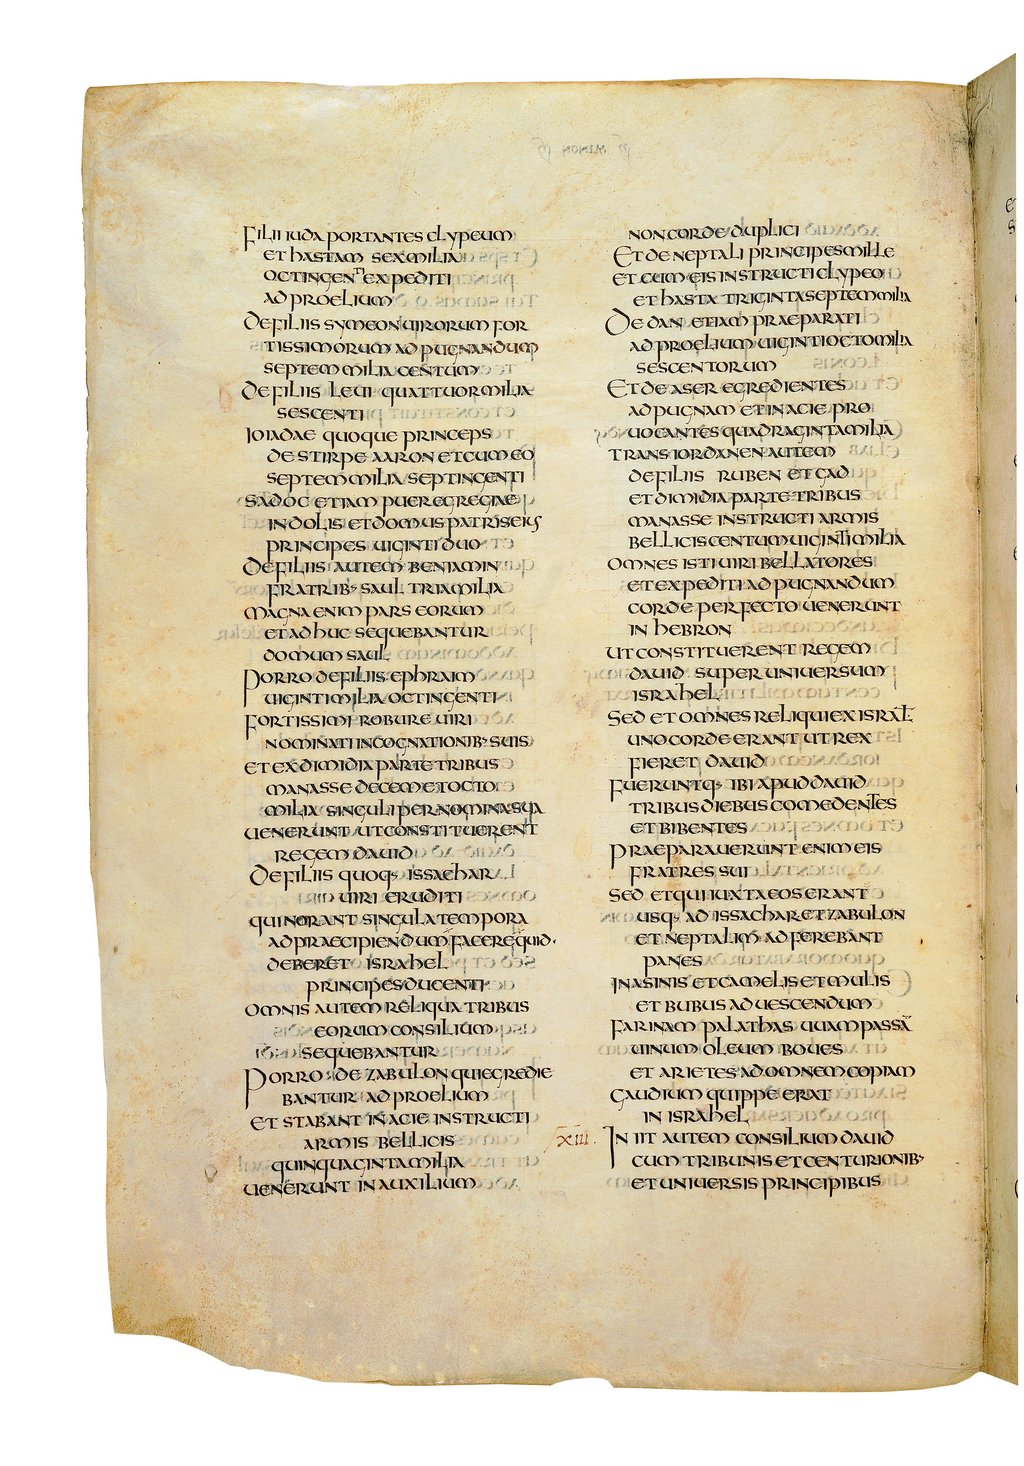 FILII IUDA PORTANTES CLYPEUM
ET HASTAM SEX MILIA
OCTINGENTI EXPEDITI
AD PROELIUM
DE FILIIS SYMEON UIRORUM FOR
TISSIMORUM AD PUGNANDUM
SEPTEM MILIA CENTUM
DE FILIIS LEUI QUATTUOR MILIA
SESCENTI
IOIADAE QUOQUE PRINCEPS
DE STIRPE AARON ET CUM EO
SEPTEM MILIA SEPTINGENTI
SADOC ETIAM PUER EGREGIAE
INDOLIS ET DOMUS PATRIS EIUS
PRINCIPES UIGINTI DUO
DE FILIIS AUTEM BENIAMIN
FRATRIB· SAUL TRIA MILIA
MAGNA ENIM PARS EORUM
ET ADHUC SEQUEBANTUR
DOMUM SAUL
PORRO DE FILIIS EPHRAIM
UIGINTI MILIA OCTINGENTI
FORTISSIMI ROBURE UIRI
NOMINATI IN COGNATIONIB· SUIS
ET EX DIMIDIA PARTE TRIBUS
MANASSE DECEM ET OCTO
MILIA SINGULI PER NOMINA SUA
UENERUNT UT CONSTITUERENT
REGEM DAUID
DE FILIIS QUOQ· ISSACHAR
UIRI ERUDITI
QUI NORANT SINGULA TEMPORA
AD PRAECIPIENDUM FACERE QUID
DEBERET ISRAHEL
PRINCIPES DUCENTI
OMNIS AUTEM RELIQUA TRIBUS
EORUM CONSILIUM
SEQUEBANTUR
PORRO DE ZABULON QUI EGREDIE
BANTUR AD PROELIUM
ET STABANT IN ACIE INSTRUCTI
ARMIS BELLICIS
QUINQUAGINTA MILIA
UENERUNT IN AUXILIUM
NON CORDE DUPLICI
ET DE NEPTALI PRINCIPES MILLE
ET CUM EIS INSTRUCTI CLYPEO
ET HASTA TRIGINTA SEPTEM MILIA
DE DAN ETIAM PRAEPARATI
AD PROELIUM UIGINTI OCTO MILIA
SESCENTORUM
ET DE ASER EGREDIENTES
AD PUGNAM ET IN ACIE PRO
UOCANTES QUADRAGINTA MILIA
TRANS IORDANEN AUTEM
DE FILIIS RUBEN ET GAD
ET DIMIDIA PARTE TRIBUS
MANASSE INSTRUCTI ARMIS
BELLICIS CENTUM UIGINTI MILIA
OMNES ISTI UIRI BELLATORES
ET EXPEDITI AD PUGNANDUM
CORDE PERFECTO UENERUNT
IN HEBRON
UT CONSTITUERENT REGEM
DAUID SUPER UNIUERSUM
ISRAHEL
SED ET OMNES RELIQUI EX ISRAL̅
UNO CORDE ERANT UT REX
FIERET DAUID
FUERUNTQ· IBI APUD DAUID
TRIBUS DIEBUS COMEDENTES
ET BIBENTES
PRAEPARAUERUNT ENIM EIS
FRATRES SUI
SED ET QUI IUXTA EOS ERANT
USQ· AD ISSACHAR ET ZABULON
ET NEPTALIM ADFEREBANT
PANES
IN ASINIS ET CAMELIS ET MULIS
ET BUBUS AD UESCENDUM
FARINAM PALATHAS UUAM PASSĀ
UINUM OLEUM BOUES
ET ARIETES AD OMNEM COPIAM
GAUDIUM QUIPPE ERAT
IN ISRAHEL
XIII. INIIT AUTEM CONSILIUM DAUID
CUM TRIBUNIS ET CENTURIONIB·
ET UNIUERSIS PRINCIPIBUS